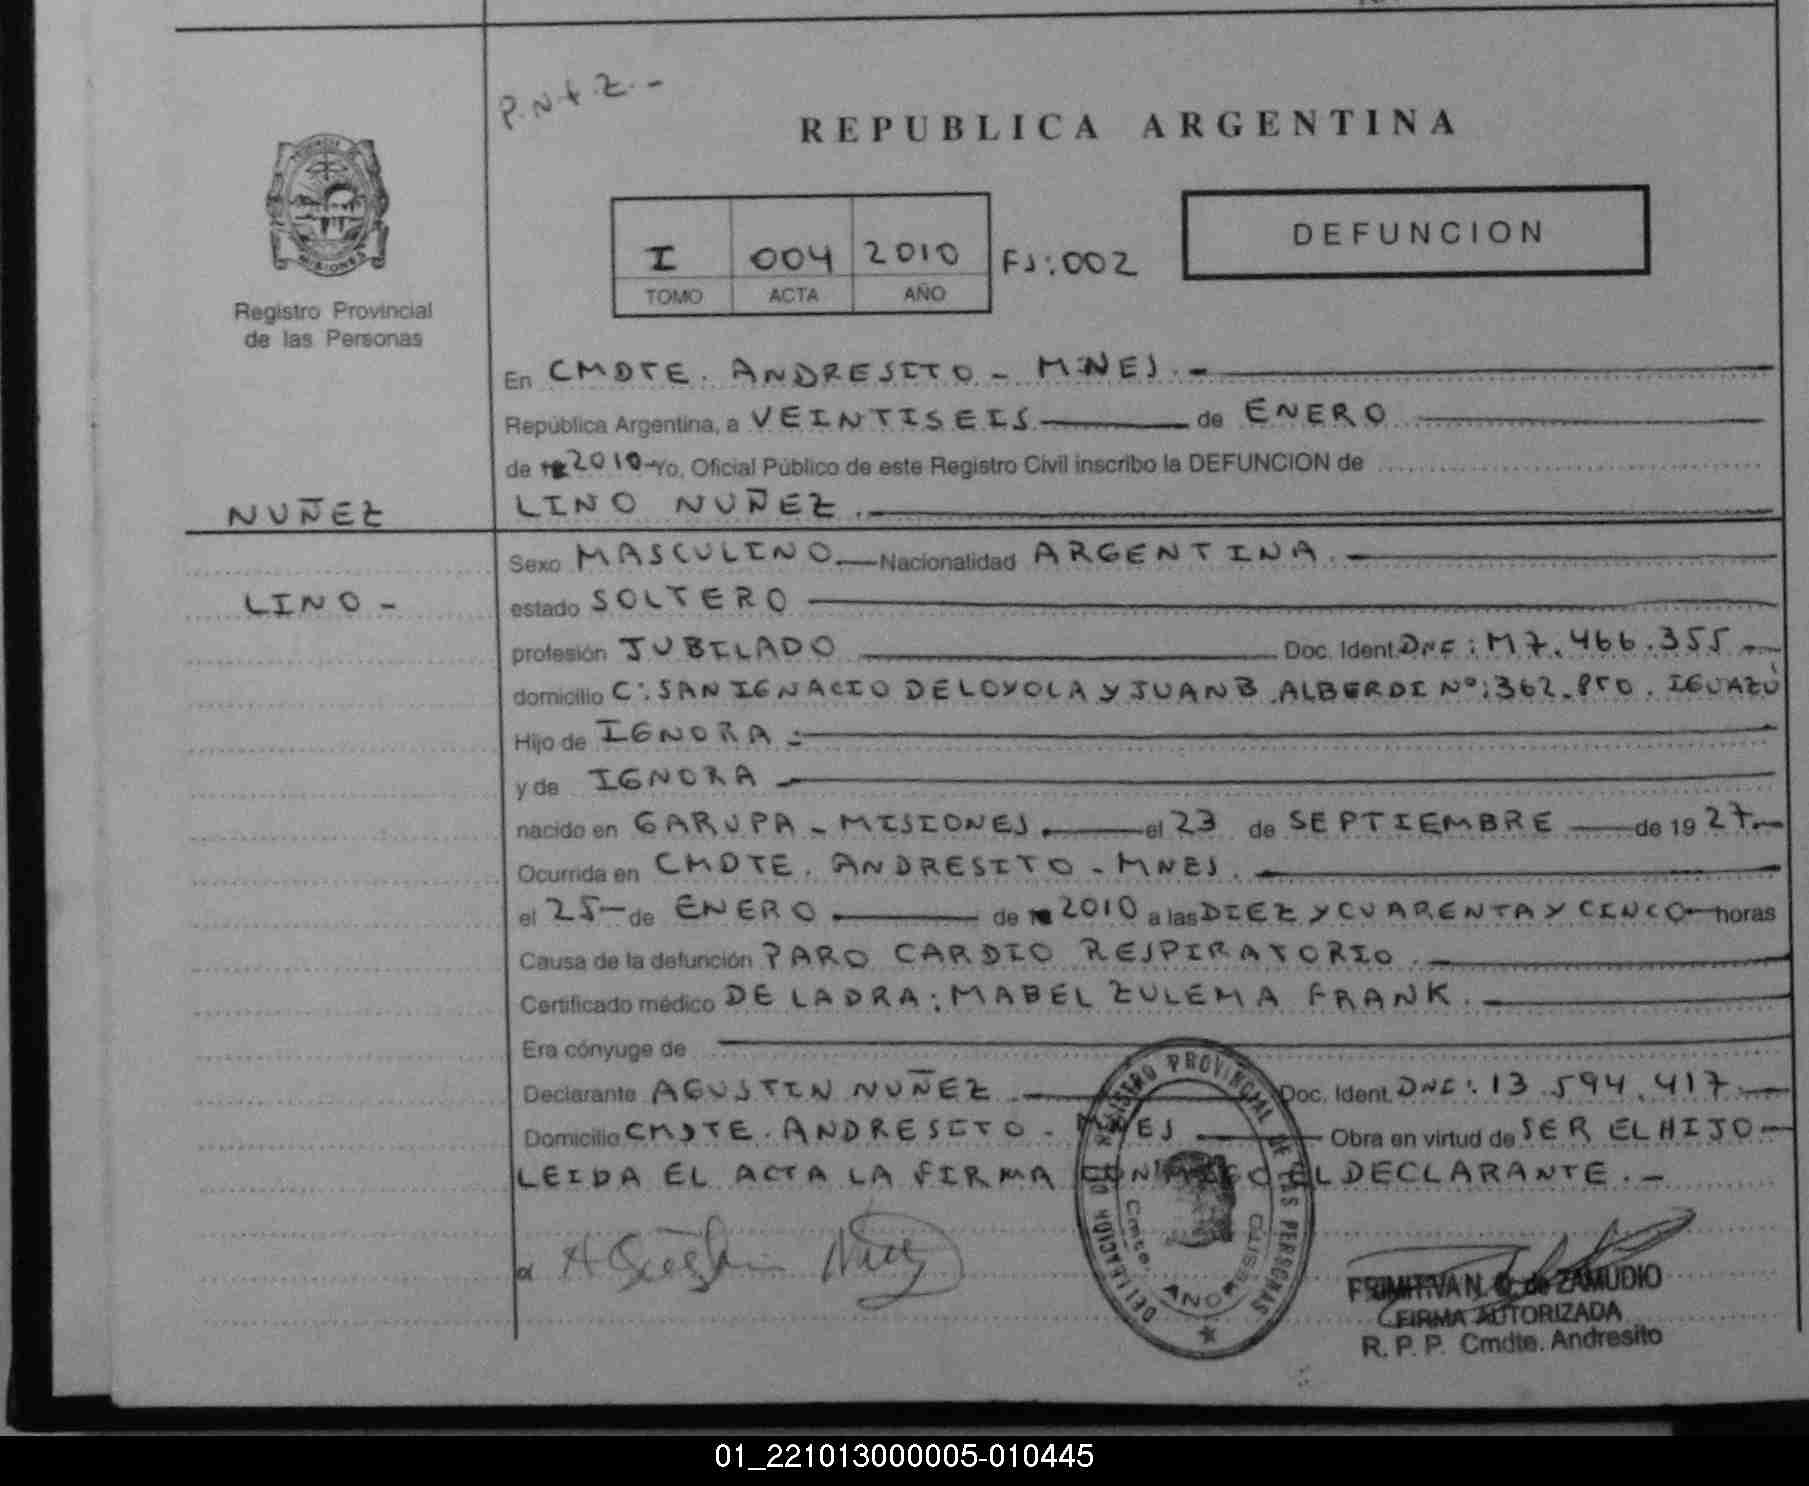 P.N+Z.-
REPUBLICA ARGENTINA
PROVINCIA DE
MISIONES
Registro Provincial
de las Personas
I 004 2010 FJ:002
TOMO ACTA AÑO
DEFUNCION
En CMDTE. ANDRESITO - MNES.-
República Argentina, a VEINTISEIS de ENERO
de 2010 Yo, Oficial Público de este Registro Civil inscribo la DEFUNCION de
NUÑEZ LINO NUÑEZ.
Sexo MASCULINO Nacionalidad ARGENTINA.
LINO - estado SOLTERO
profesión JUBILADO Doc. Ident. DNI: M7.466.355
domicilio C: SAN IGNACIO DE LOYOLA Y JUAN B. ALBERDI Nº: 362. PTO. IGUAZÚ
Hijo de IGNORA
y de IGNORA
nacido en GARUPA - MISIONES. el 23 de SEPTIEMBRE de 19 27.-
Ocurrida en CMDTE. ANDRESITO - MNES.
el 25 de ENERO de 2010 a las DIEZ Y CUARENTA Y CINCO horas
Causa de la defunción PARO CARDIO RESPIRATORIO.
Certificado médico DE LA DRA: MABEL ZULEMA FRANK.
Era cónyuge de
Declarante AGUSTIN NUÑEZ Doc. Ident. DNI: 13.594.417.
Domicilio CMDTE. ANDRESITO - MNES Obra en virtud de SER EL HIJO
LEIDA EL ACTA LA FIRMA CONMIGO EL DECLARANTE.-
Agustin Nuñez
DELEGACION DEL REGISTRO PROVINCIAL DE LAS PERSONAS
Cmte. ANDRESITO
PRIMITIVA N. de ZAMUDIO
FIRMA AUTORIZADA
R. P. P. Cmdte. Andresito
01_221013000005-010445